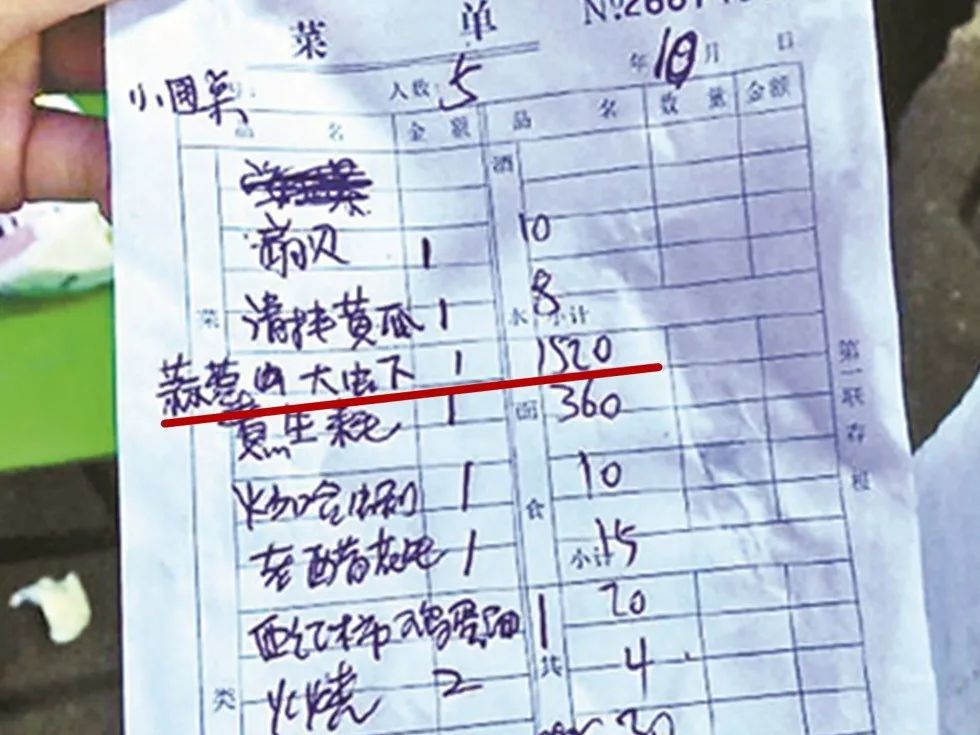 菜 单 №
小圆桌 人数: 5 年 10 月 日
品 名 金 额 品 名 数 量 金额
酒
扇贝 1 10
清拌黄瓜 1 8
菜 水 小计
大虾 1 1520
生蚝 1 面 360
炒蛤蜊 1 10
食
老醋 1 小计 15
西红柿鸡蛋 1 20
共
类 火烧 2 4
30
第一联存根